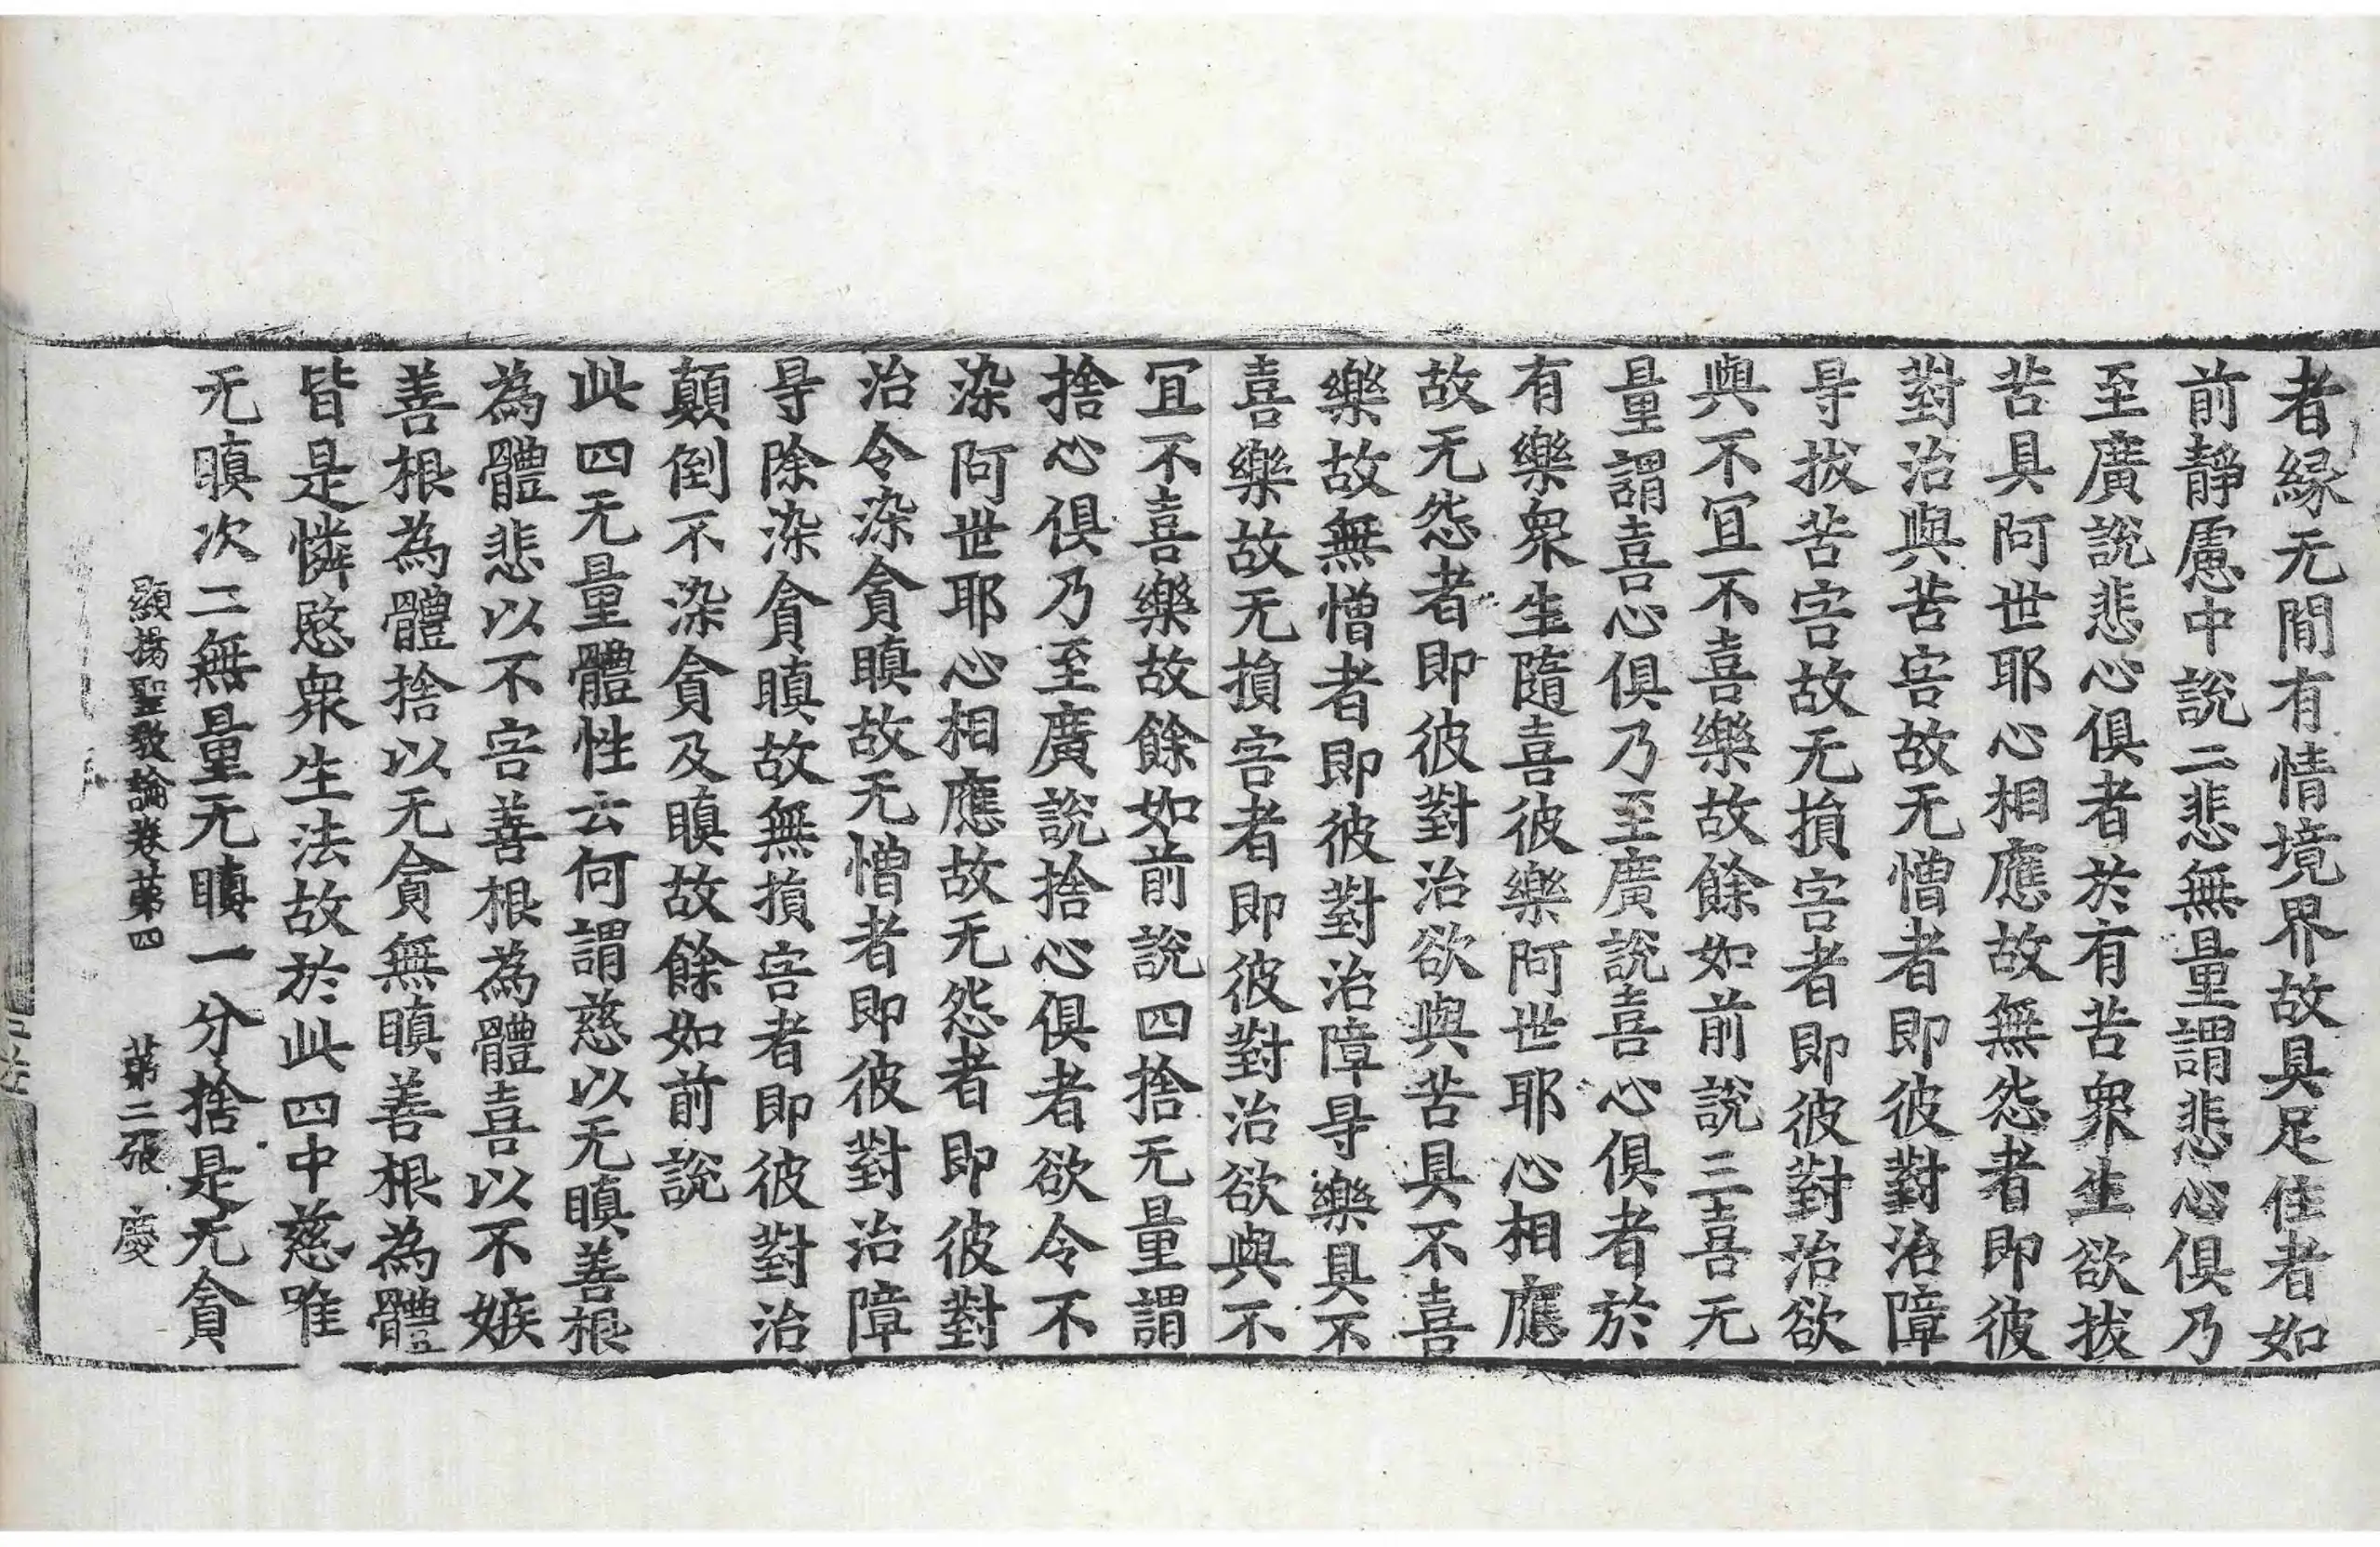 者緣无間有情境界故具足住者如
前靜慮中說二悲無量謂悲心俱乃
至廣說悲心俱者於有苦衆生欲拔
苦具阿世耶心相應故無怨者即彼
對治與苦害故无憎者即彼對治障
㝵拔苦害故无損害者即彼對治欲
與不冝不喜樂故餘如前說三喜无
量謂喜心俱乃至廣說喜心俱者於
有樂衆生隨喜彼樂阿世耶心相應
故无怨者即彼對治欲與苦具不喜
樂故無憎者即彼對治障㝵樂具不
喜樂故无損害者即彼對治欲與不
冝不喜樂故餘如前說四捨无量謂
捨心俱乃至廣說捨心俱者欲令不
染阿世耶心相應故无怨者即彼對
治令染貪瞋故无憎者即彼對治障
㝵除染貪瞋故無損害者即彼對治
顛倒不染貪及瞋故餘如前說
此四无量體性云何謂慈以无瞋善根
為體悲以不害善根為體喜以不嫉
善根為體捨以无貪無瞋善根為體
皆是憐愍衆生法故於此四中慈唯
无瞋次二無量无瞋一分捨是无貪
顯揚聖教論卷苐四 苐二張 慶